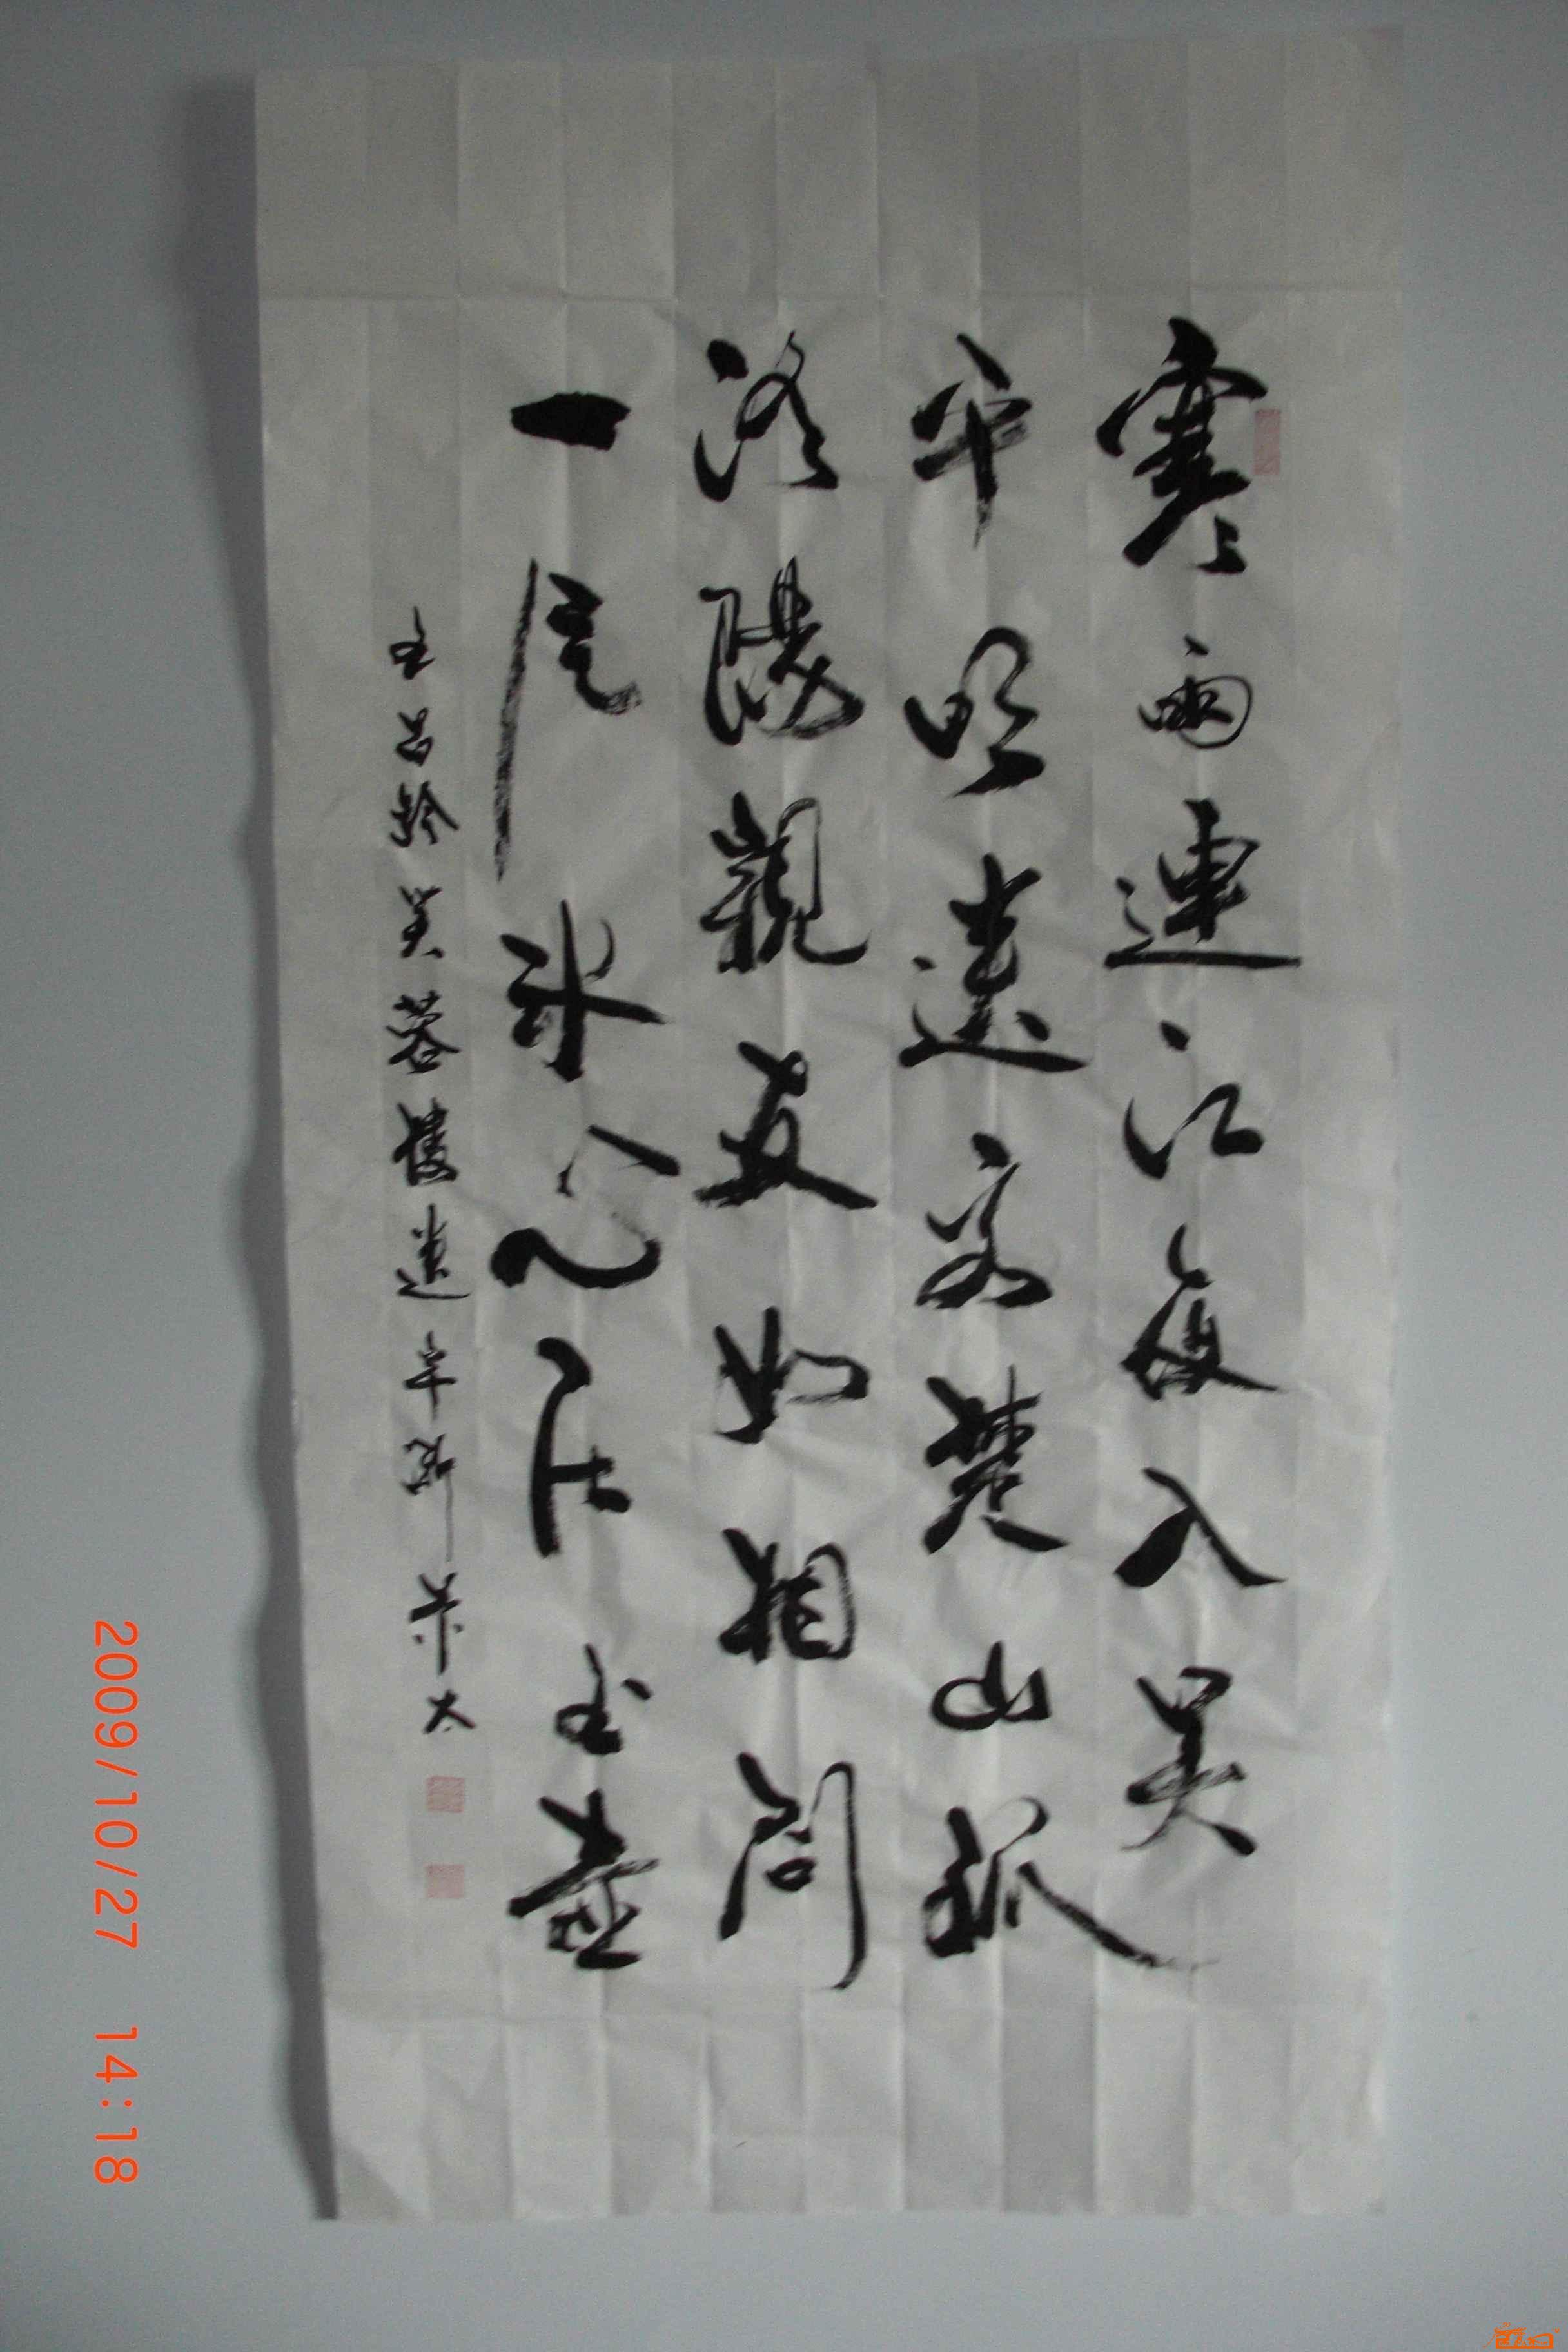 寒雨連江夜入吴
平明送客楚山孤
洛陽親友如相問
一片冰心在玉壺
王昌齡芙蓉樓送辛漸
2009/10/27 14:18